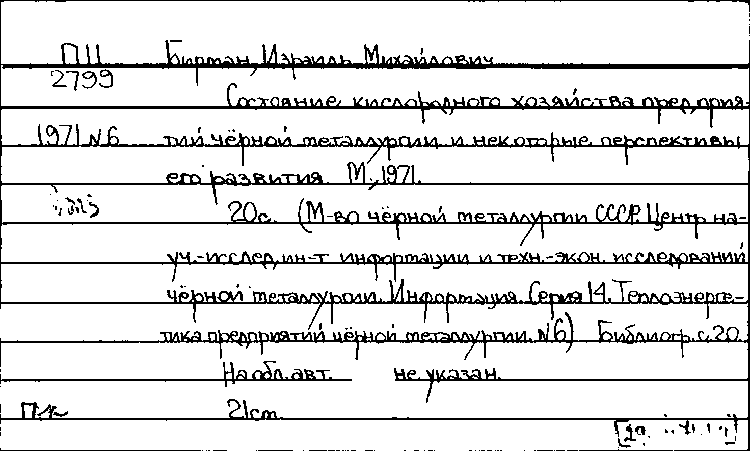 П11 Бирман, Израиль Михайлович
2799
Состояние кислородного хозяйства предприя-
1971 №6 тий чёрной металлургии и некоторые перспективы
его развития. М., 1971.
20с. (М-во чёрной металлургии СССР. Центр на-
уч.-исслед. ин-т информации и техн.-экон. исследований
чёрной металлургии. Информация. Серия 14. Теплоэнерге-
тика предприятий чёрной металлургии. №6) Библиогр. с. 20.
На обл. авт. не указан.
21cm.